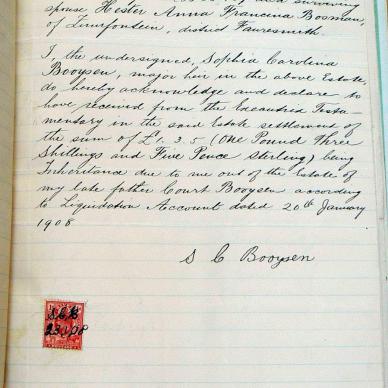 and surviving
spouse Hester Anna Francina Booman,
of Zuurfontein, district Fauresmith.
I, the undersigned, Sophia Carolina
Booysen, major heir in the above Estate,
do hereby acknowledge and declare to
have received from the Executrix Testa-
mentary in the said Estate settlement of
the sum of £1. 3. 5 (One Pound Three
Shillings and Five Pence Sterling) being
Inheritance due to me out of the Estate of
my late father Court Booysen according
to Liquidation Account dated 20th January
1908
S C Booysen
S.C.B
23/1/08